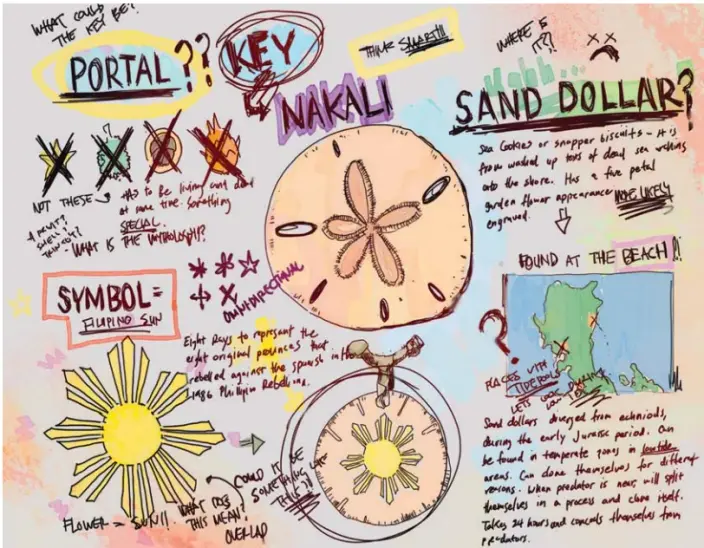 WHAT COULD
THE KEY BE?
PORTAL??
KEY
THINK SMART!!!
WHERE IS
IT?!
NAKALI
SAND DOLLAR?
NOT THESE → to be living and dead
at same time. Something
SPECIAL.
A FRUIT?
SHELL?
WHAT IS THE MYTHOLOGY?
Sea Cookies or snapper biscuits - It is
from washed up tests of dead sea urchins
onto the shore. Has a five petal
garden flower appearance MORE LIKELY
engraved.
FOUND AT THE BEACH!!
SYMBOL =
FILIPINO SUN
OMNIDIRECTIONAL
Eight Rays to represent the
eight original provinces that
rebelled against the Spanish in the
Phillipin Rebellions.
?
PLACES WITH
TIDEPOOLS
LETS LOOK DURING
LOW
Sand dollars diverged from echinoids,
during the early Jurasic period. Can
be found in temperate zones in lowtide
areas. Can clone themselves for different
reasons. When predator is near, will split
themselves in a process and clone itself.
Takes 24 hours and conceals themselves from
predators.
FLOWER = SUN!!
WHAT DOES
THIS MEAN?
OVERLAP
COULD IT BE
SOMETHING LIKE
THIS?!